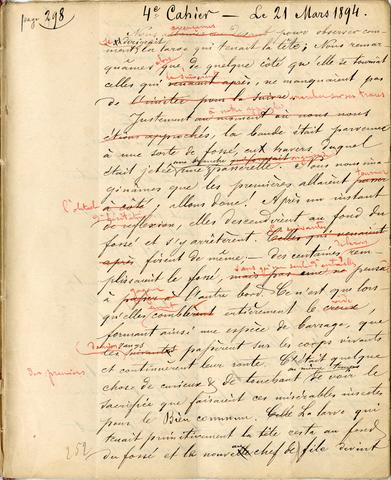 page 298
4e Cahier — Le 21 Mars 1894.
Nous pour observer com-
ment la larve qui tenait la tête; Nous remar-
quâmes que de quelque côté qu'elle se tournât
celles qui venaient après, ne manquaient pas
de l'imiter pour la suivre.
Justement au moment où nous nous
étions approchés, la bande était parvenue
à une sorte de fossé, au travers duquel
était jetée une passerelle. Nous nous ima-
ginâmes que les premières allaient passer
à côté; allons donc! Après un instant
de réflexion, elles descendirent au fond du
fossé et s'y arrêtèrent. Celles qui venaient
après firent de même; — des centaines rem-
plissaient le fossé, mais pas une ne pensa
à passer à l'autre bord. Ce n'est que lors
qu'elles comblèrent entièrement le creux,
formant ainsi une espèce de barrage, que
les suivantes passèrent sur les corps vivants
et continuèrent leur route. C'était quelque
chose de curieux & de touchant de voir le
sacrifice que faisaient ces misérables insectes
pour le Bien commun. Celle La larve qui
tenait primitivement la tête resta au fond
du fossé et la nouveau chef de file devint
des premiers
252